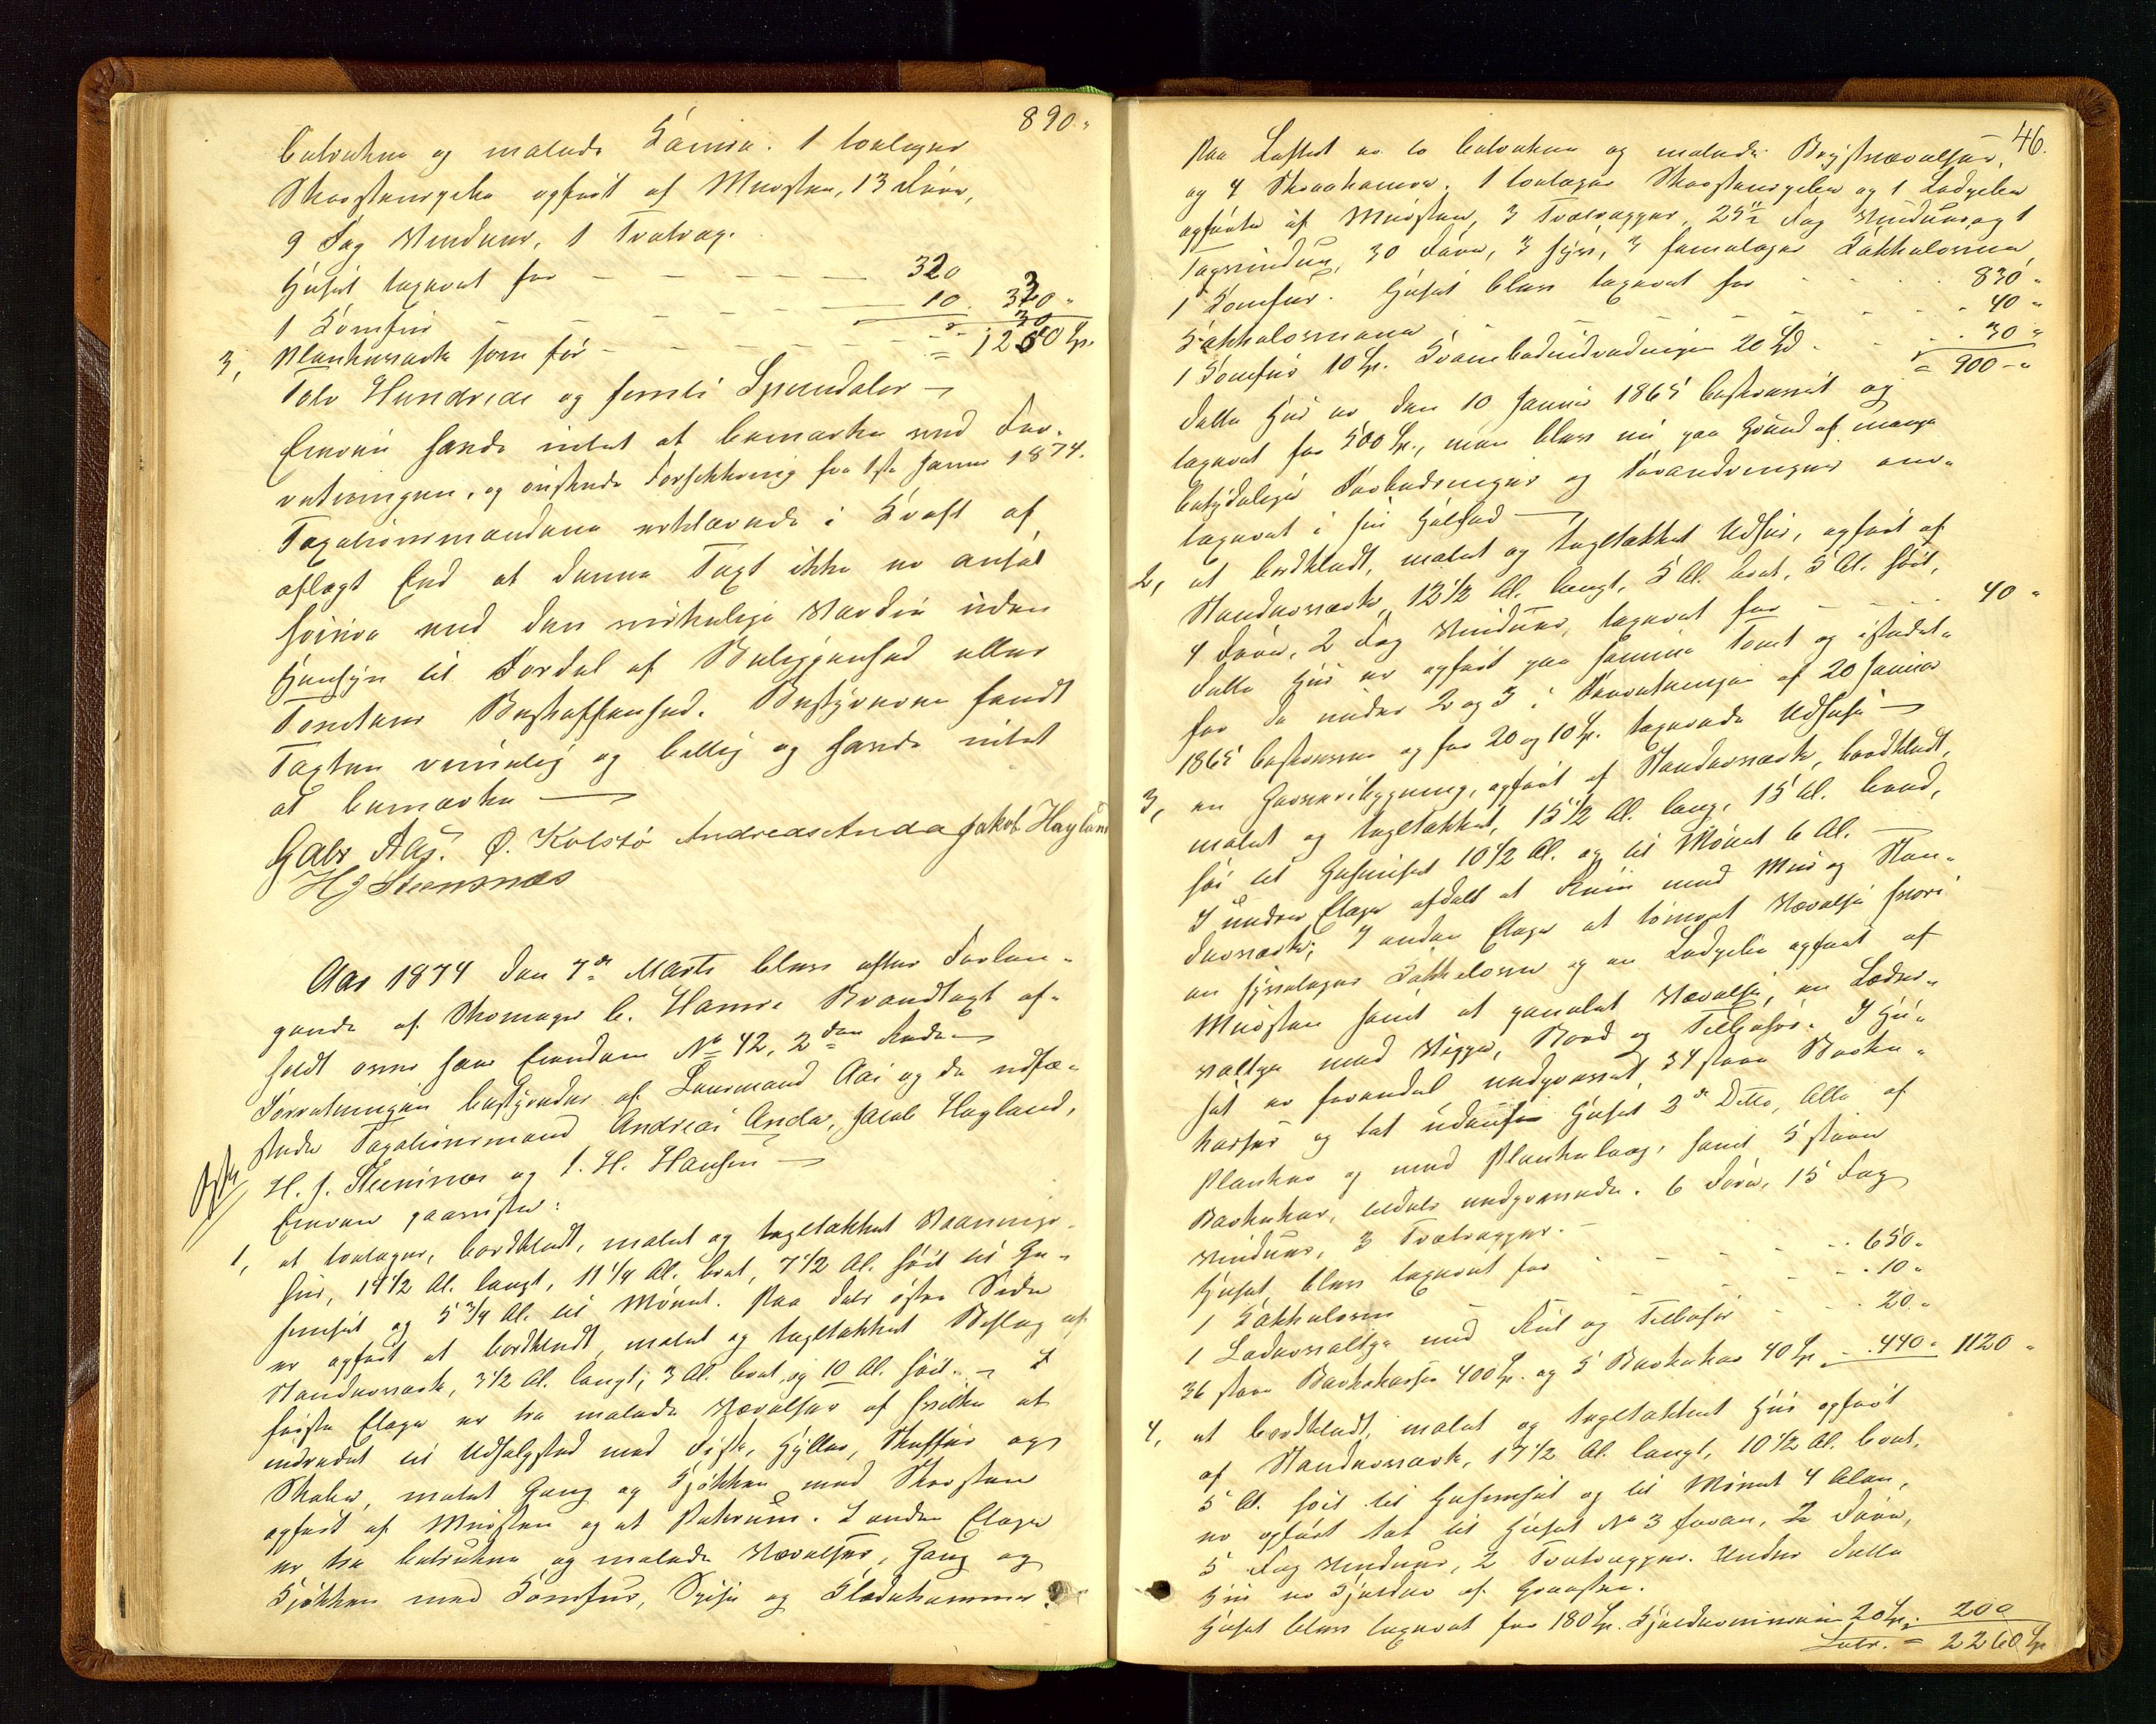 890 "
betrukne og malede Kamre. 1 toetages
Skorstenspibe opført af Mursten, 13 Døre,
9 Fag Vinduer, 1 Trætrap.
Huset taxeret for — — — — — 320
1 Komfur — — — — — 10. 330 "
3, Plankeværk som før — — — — — 30
= 1250 Sp.
Tolv Hundrede og femti Speciedaler —
Eieren havde intet at bemærke ved For-
retningen, og ønskede Forsikkring fra 1ste Januar 1874.
Taxationsmændene erklærede i Kraft af
aflagt Eed at denne Taxt ikke er ansat
høiere end den virkelige Værdie uden
Hensyn til Fordel af Beliggenhed eller
Tomtens Beskaffenhed. Bestyreren fandt
Taxten rimelig og billig og havde intet
at bemærke —
Gabr Aas. Ø. Kolstø Andreas Anda Jakob Hayland
HJ Steensnæs
Aar 1874 den 7de Marts blev efter Forlan-
gende af Skomager C. Hamre Brandtaxt af-
holdt over hans Eiendom No 42, 2den Rode —
Forretningen bestyredes af Lensmand Aas og de udfæ-
stede Taxationsmænd Andreas Anda, Jacob Hayland,
H. J. Steensnæs og I. H. Hansen —
Eieren paaviste:
1, et toetages, bordklædt, malet og tagltækket Vaanings-
hus, 14 1/2 Al. langt, 11 1/4 Al. bret, 7 1/2 Al. høit til Ge-
simset og 5 3/4 Al. til Mønet. Paa dets østre Side
er opført et bordklædt, malet og tagltækket Beslag af
Standerværk, 3 1/2 Al. langt, 3 Al. bret og 10 Al. høit. — I
første Etage er tre malede Værelser af hvilke et
indredet til Udsalgsted med Diske, Hyller, Skuffer og
Skabe, malet Gang og Kjøkken med Skorsten
opført af Mursten og et Paterum. I anden Etage
er tre betrukne og malede Værelser, Gang og
Kjøkken med Komfur, Spise og Klædekammer.
46.
Paa Loftet er to betrukne og malede Brystværelser,
og 4 Skraakamre. 1 toetages Skorstenspibe og 1 Ladpibe
opførte af Mursten, 3 Trætrapper, 25 1/2 Fag Vinduer og 1
Tagvindue, 30 Døre, 3 fyr, 3 femetages Kakkelovne,
1 Komfur. Huset blev taxeret for — — — 830 "
Kakkelovnene — — — — 40 "
1 Komfur 10 Sp. Krambodindredningen 20 Spd — — 30 "
= 900 — "
Dette Hus er den 10 Januar 1865 beskrevet og
taxeret for 500 Sp., men blev nu paa Grund af mange
betydelige Forbedringer og Forandringer om-
taxeret i sin Helhed —
2, et bordklædt, malet og tagltækket Udhus, opført af
Standerværk, 12 1/2 Al. langt, 5 Al. bret, 5 Al. høit,
4 Døre, 2 Fag Vinduer, taxeret for — — — 40 "
Dette Hus er opført paa samme Tomt og istedet-
for de under 2 og 3 i Forretningen af 20 Januar
1865 beskrevne og for 20 og 10 Sp. taxerede Udhuse —
3, en Garveribygning, opført af Standerværk, bordklædt,
malet og tagltækket, 15 1/2 Al. lang, 15 Al. bred,
høi til Gesimset 10 1/2 Al. og til Mønet 6 Al. —
I undre Etage afdelt et Rum med Mur og Stan-
derværk; I anden Etage et tømret Værelse hvori
en fyretages Kakkelovn og en Ladpibe opført af
Mursten samt et panelet Værelse, en Læder-
valtse med Vægge, Bord og Tilbehør. I Hu-
set er forendel nedgravet 34 store Barke-
kasser og tæt udenfor Huset 2de Ditto, Alle af
Planker og med Plankelaag, samt 5 større
Barkekar, tildels nedgravede. 6 Døre, 15 Fag
Vinduer, 3 Trætrapper. —
Huset blev taxeret for — — — — — 650 "
1 Kakkelovn — — — — — 10 "
1 Lædervaltse med Rul og Tilbehør — — — 20 "
36 store Barkekasser 400 Sp. og 5 Barkekar 40 Sp — 440 " 1120 "
4, et bordklædt, malet og tagltækket Hus opført
af Standerværk, 17 1/2 Al. langt, 10 1/2 Al. bret,
5 Al. høit til Gesimset og til Mønet 4 Alen,
er opført tæt til Huset No 3 foran, 2 Døre,
5 Fag Vinduer, 2 Trætrapper. Under dette
Hus er Kjelder af Graasten.
Huset blev taxeret for 180 Sp. Kjeldermuren 20 Sp. 200
Latr. = 2260 Sp